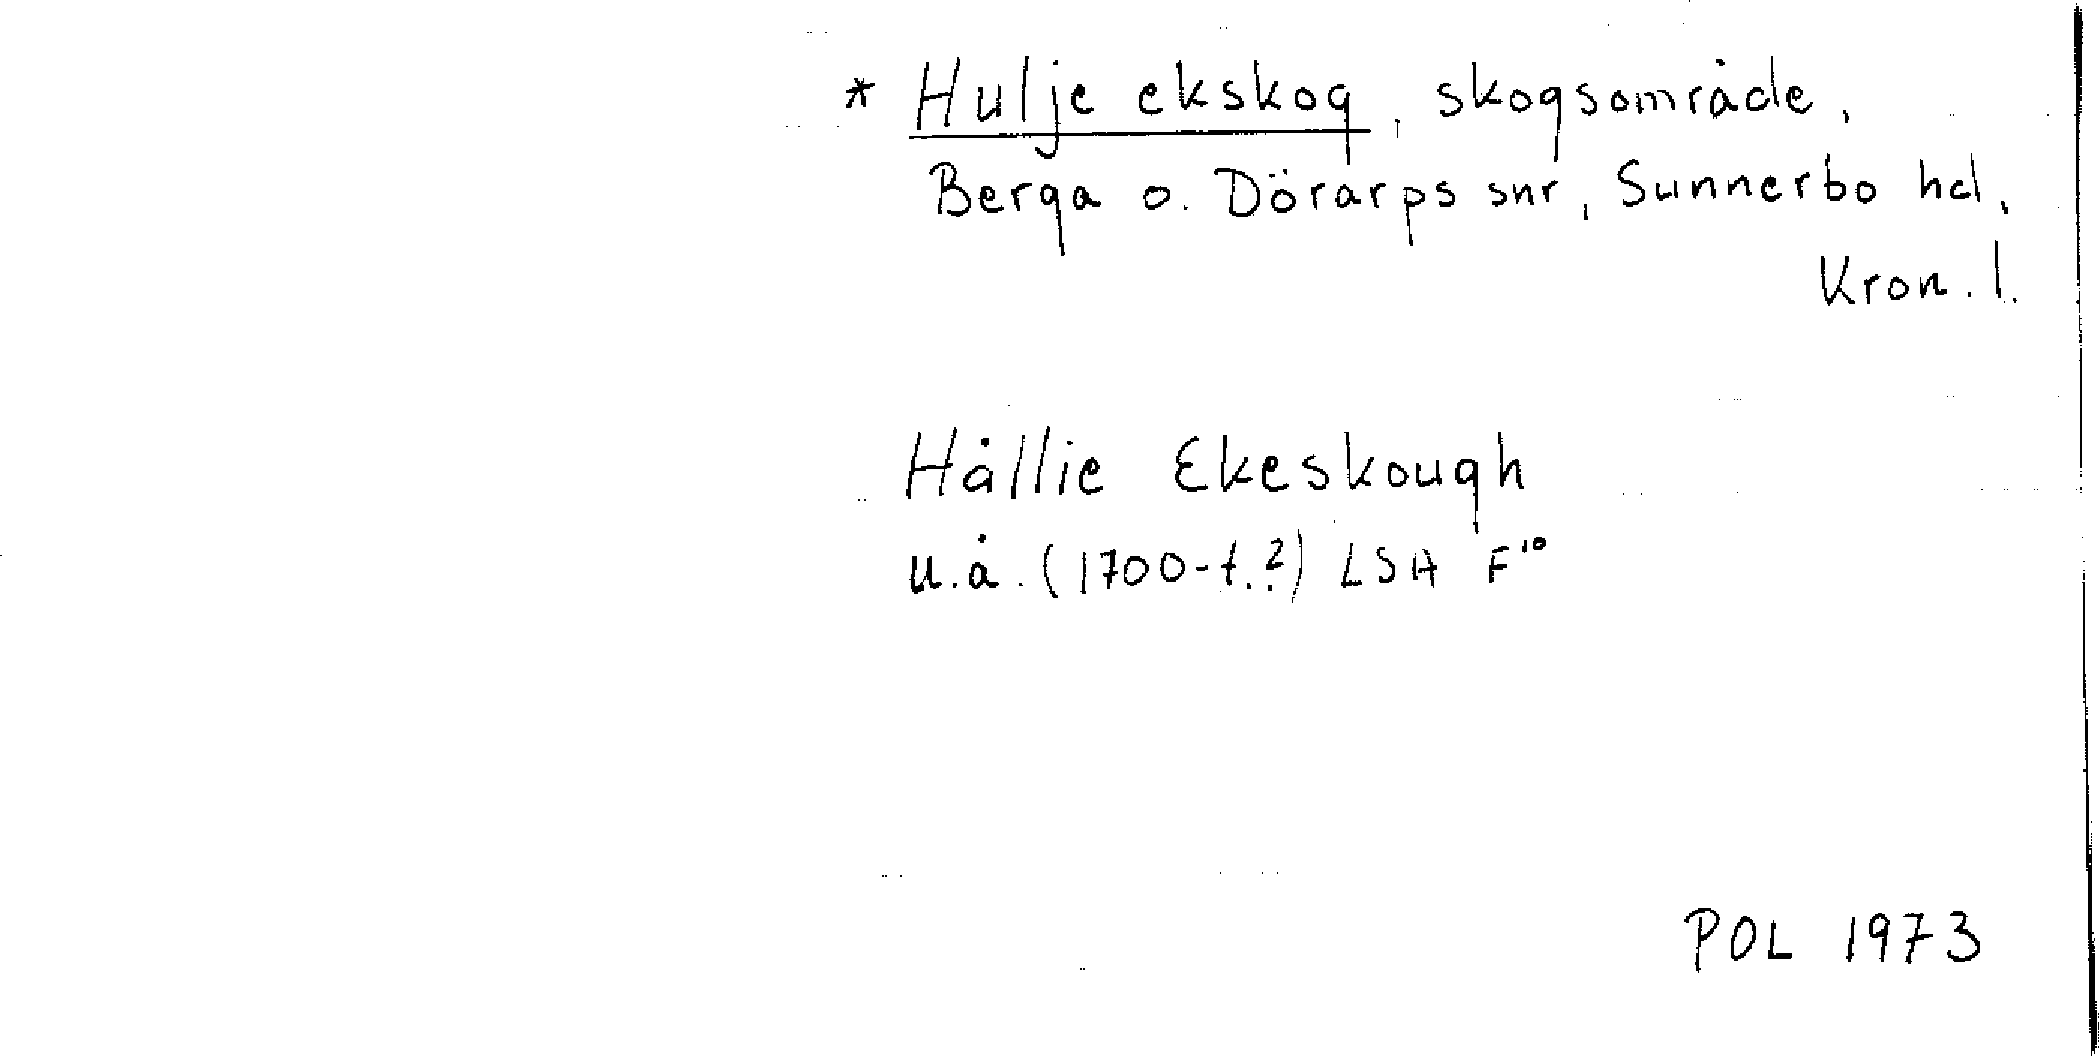 * Hulje ekskog, skogsområde,
Berga o. Dörarps snr, Sunnerbo hd,
Kron. l.
Hållie Ekeskough
u.å. (1700-t.?) LSA F¹⁰
POL 1973